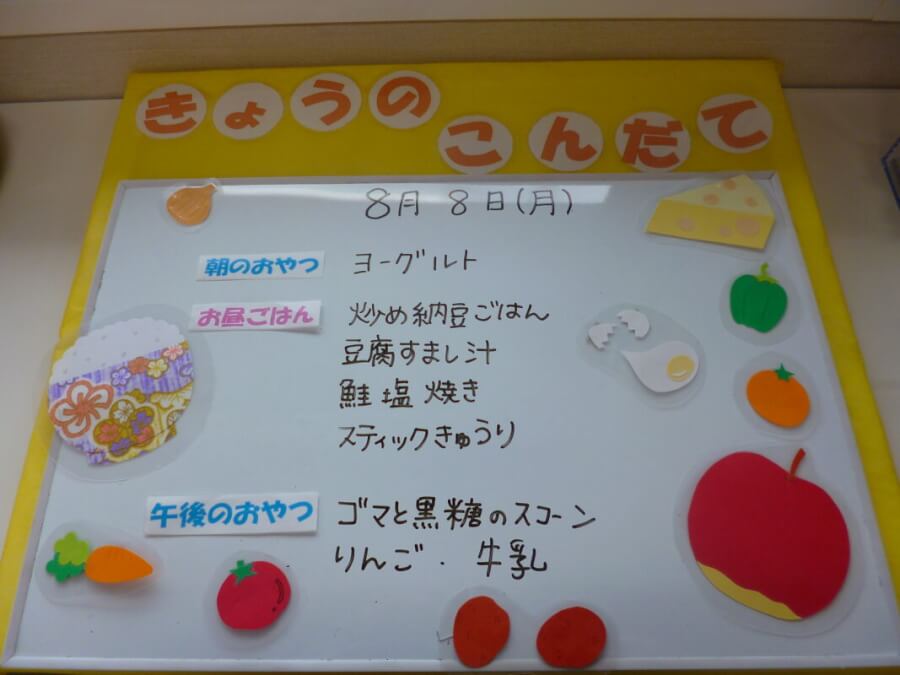 きょうの
こんだて
8月 8日(月)
朝のおやつ ヨーグルト
お昼ごはん 炒め納豆ごはん
豆腐すまし汁
鮭塩焼き
スティックきゅうり
午後のおやつ ゴマと黒糖のスコーン
りんご・牛乳